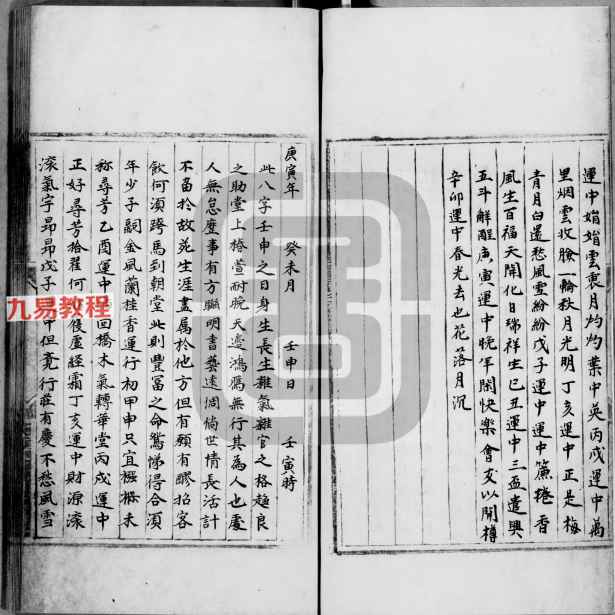 運中娟娟雲裏月灼灼葉中英丙戌運中萬
里烟雲收臉一輪秋月光明丁亥運中正是梅
青月白還愁風雪紛紛戊子運中運中簾捲香
風生百福天開化日瑞祥生己丑運中三盃遣興
五斗解酲庚寅運中晚年閑快樂會友以開樽
辛卯運中春光去也花落月沉
庚寅年 癸未月 壬申日 壬寅時
此八字壬申之日身生長生雜氣雜官之格趨艮
之助堂上椿萱耐晚天邊鴻鴈無行其為人也處
人無怠麼事有方聰明書藝遠惆倘世情長活計
不畱於故苑生涯盡屬於他方但有願有醪招客
飲何須跨馬到朝堂此則豐冨之命鴛悌得合須
年少子嗣金風蘭桂香運行初甲申只宜襁褓未
称尋芳乙酉運中
回橋木氣轉華堂丙戌運中
正好尋芳拾翠何
後屋經霜丁亥運中財源滾
滾氣宇昻昻戊子
中但竟行莊有慶不愁風雪
九易教程